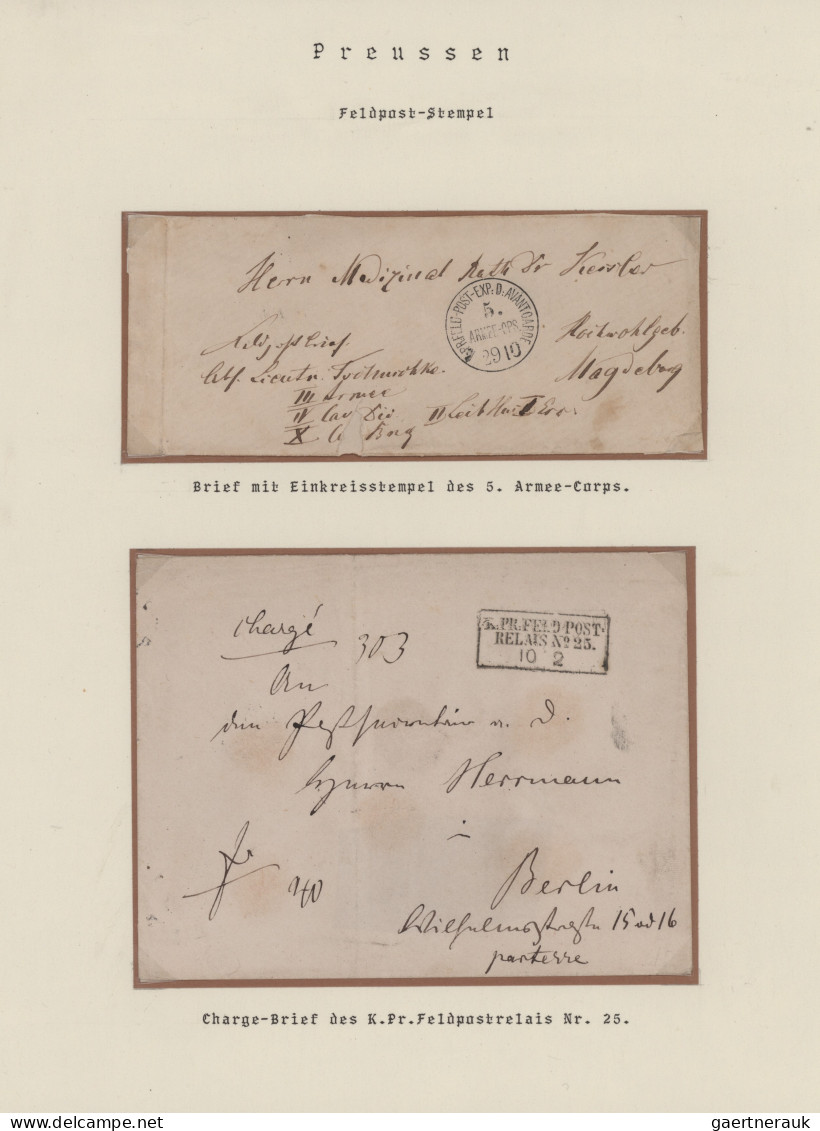 Preussen
Feldpost-Stempel
Herrn Medizinal Rath Dr Kessler
K.PR.FELD-POST-EXP.D.AVANTGARDE
5.
ARMEE-CPS.
29 10
Hochwohlgeb.
Magdeburg
Feldpostbrief
Abs. Lieutn.
III Armee
II Cav Div
X C Brig
Brief mit Einkreisstempel des 5. Armee-Corps.
Chargé
303
K.PR.FELD-POST-
RELAIS No 25.
10 2
An
den Postsecretair a. D.
Herrn Herrmann
in
Berlin
fr
40
Wilhelmsstraße 15 od 16
parterre
Charge-Brief des K.Pr.Feldpostrelais Nr. 25.
gaertnerauk